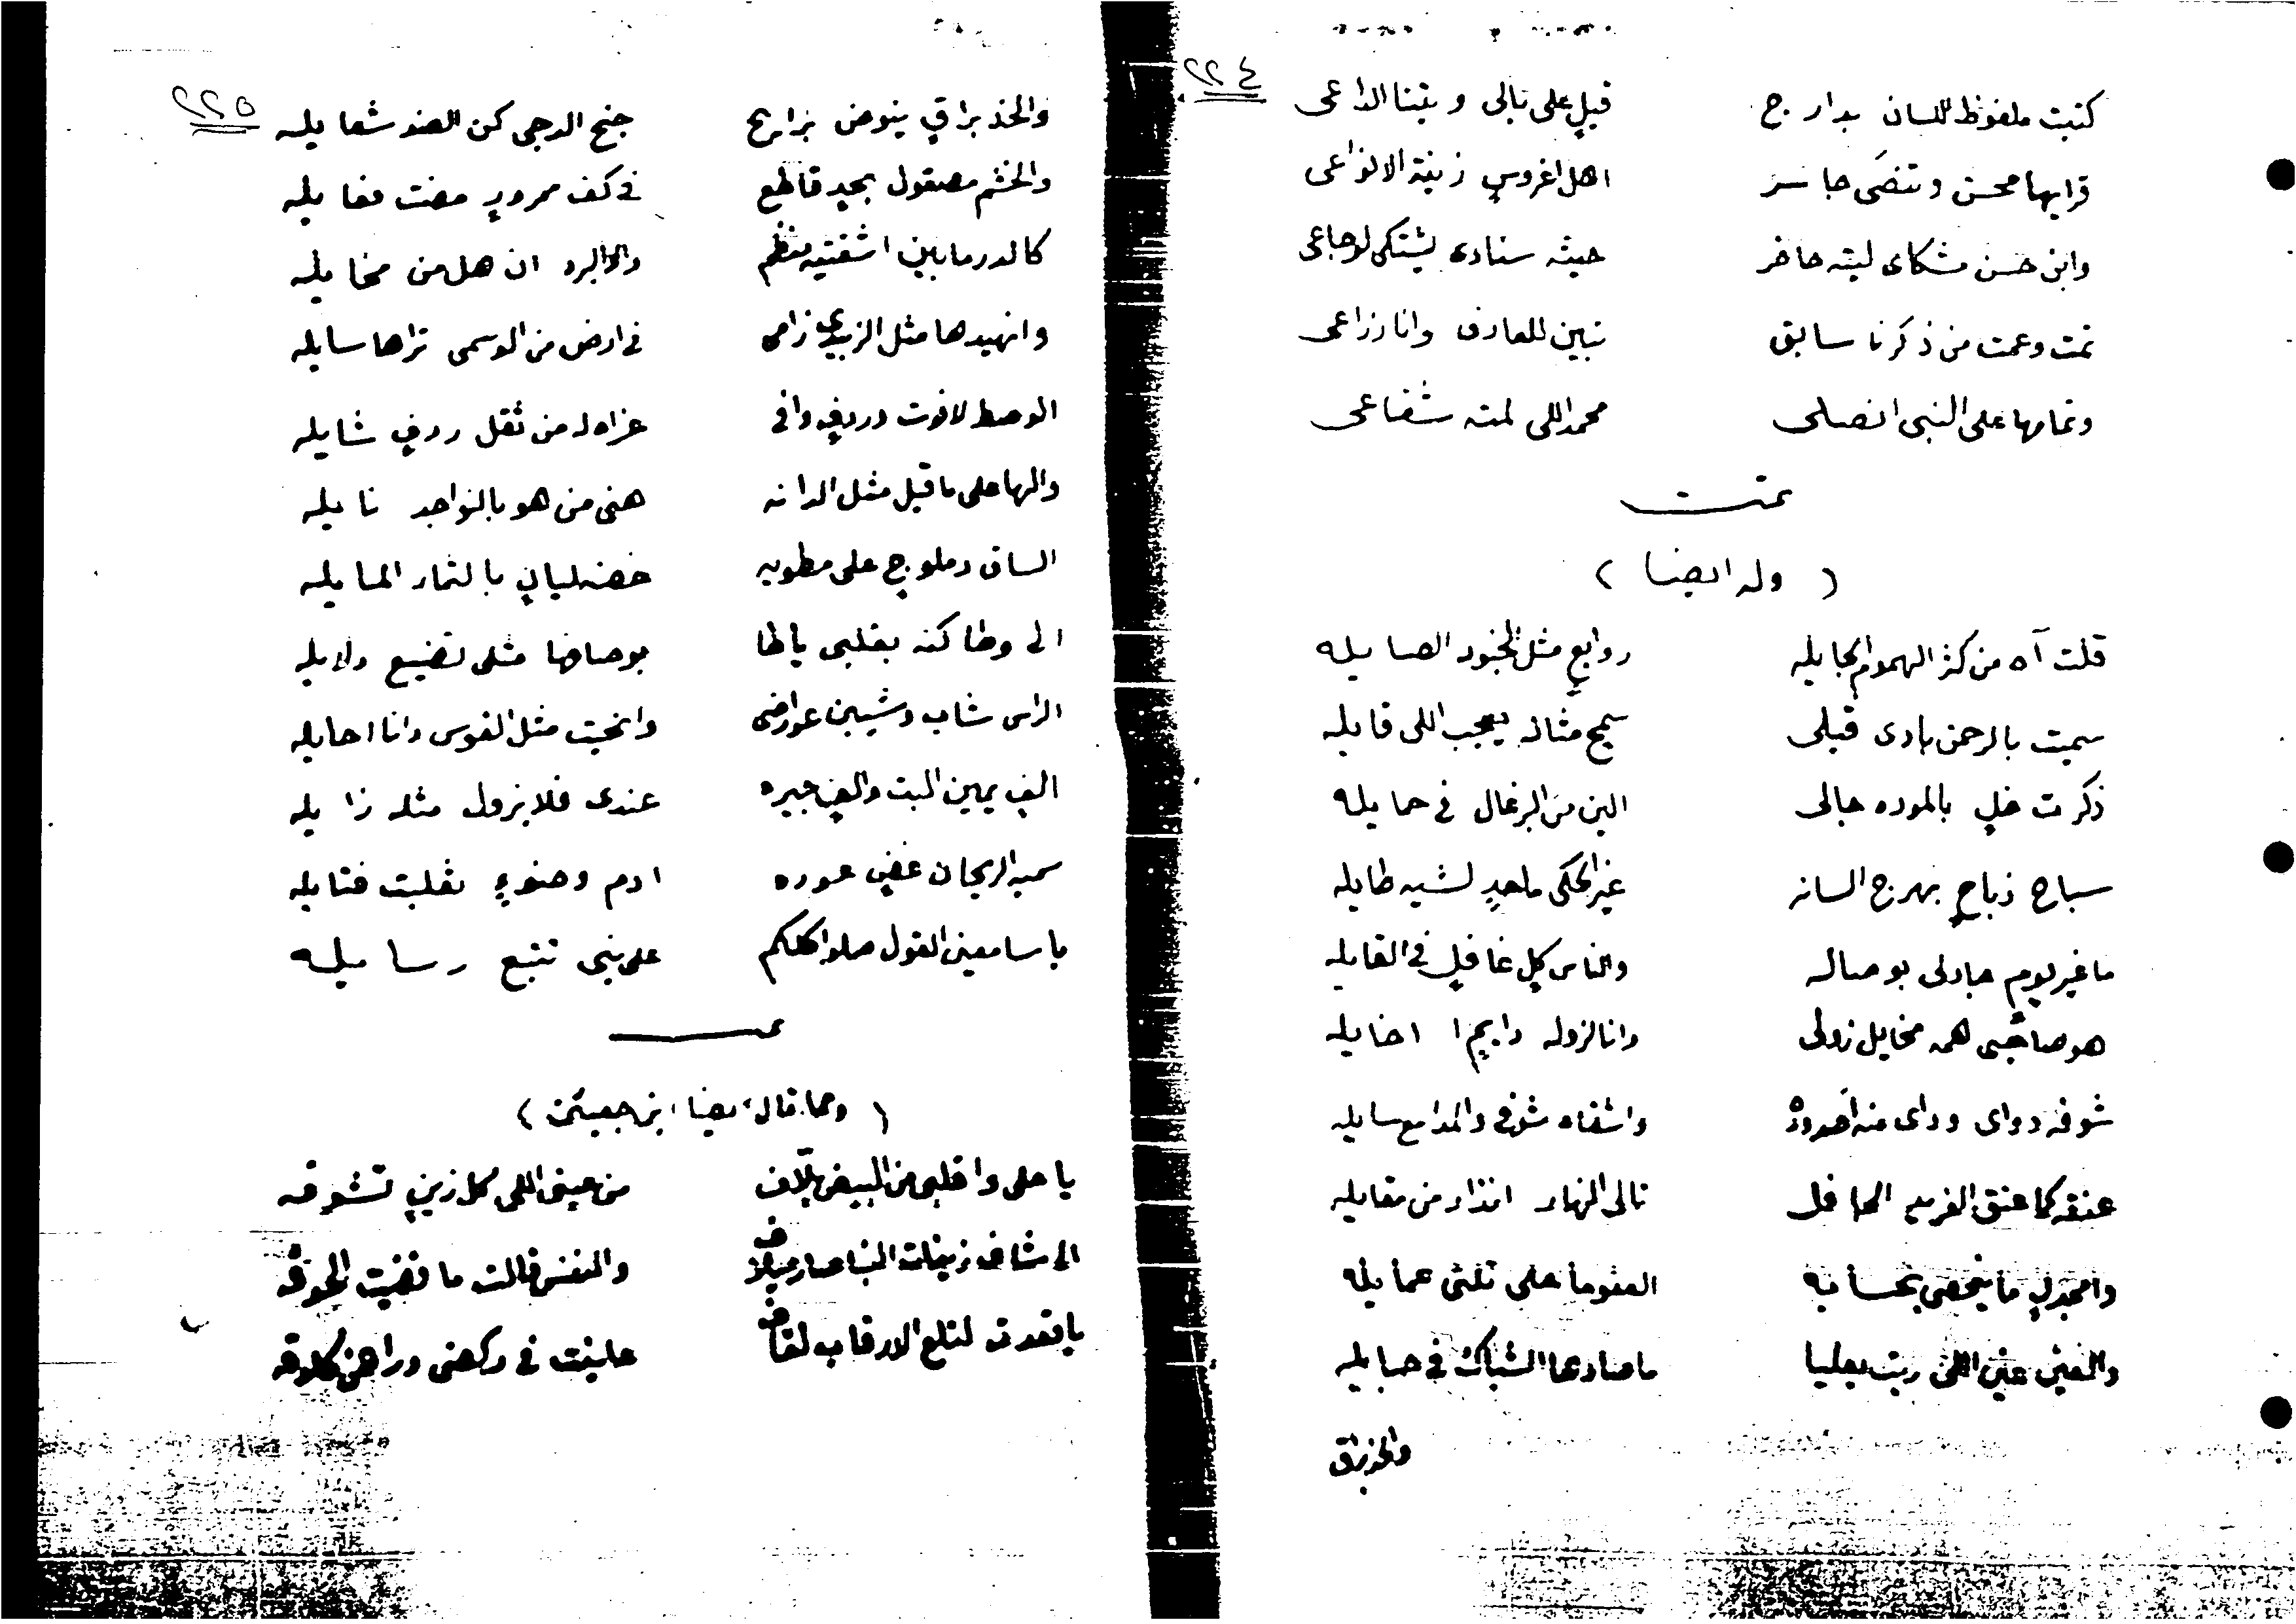 ٢٢٤
كتبت ملفوظ للسان بدارج قيل على بالي وبتنا الداعي
قرايها محسن وتنصى جاسر اهل اغروس زينة الانواعى
وابن حسن مشكاى ليته حاضر حيثه سنادى يشتكى لوجاعى
تمت وعمت من ذكرنا سابق تبين للعارف وانا رزاعى
وتمامها على النبى انصلى محمد اللى لمته شفاعى
تمت
( وله ايضا )
قلت آه من كثر الهموم الجايله روابع مثل الجنود الصايله
سميت بالرحمن بادى قيلى سمح مثاله يعجب اللى قايله
ذكرت خل بالموده حالى الين من البرغال فى حمايله
سباح ذباح بهرج السانه غير الحكى ماحد لشيه طايله
ما غير يوم جادلى بوصاله والناس كل غافل فى القايله
هو صاحبى همه مخايل زولى وانا لزوله دايم اخايله
شوفه دواى وداى منه اصدوده واشفاه شوفى والمدامع سايله
عنقه كما عنق الفريد الجافل تالى النهار انذار من مقايله
وامجدل ما ينحصى بحسابه العثوما على ثلثى عمايله
والعين عين اللى ربت بعليا ما صادها الشباك فى حبايله
والخد براق

٢٢٥
والخد براق ينوض برايح جنح الدجى كن الصند شعايله
والخشم مصقول بحد قاطع فى كف ممرور مضت فعايله
كالدر مابين اشفتيه منظم والا البرد ان هل من مخايله
وانهيدها مثل الزبيدى زامى فى ارض من الوسمى تراها سايله
الوصط لافوت وردف وافى عزاه له من ثقل ردف شايله
والها على ما قيل مثل الدانه هنى من هو بالنواجد نايله
الساق دملوج على مطويه خضليان بالثمار المايله
الى وطا كنه بقلبى ياطا بوصافها مثلى تضيع دلايله
الراس شاب وشيبن عوارضى وانحيت مثل القوس وانا احايله
الف يمين البت والف جيره عندى فلا يزول مثله زايله
سميه الريحان غض عوده ادم وصنوه بقلبت فتايله
يا سامعين القول صلوا كلكم على نبى تتبع رسايله
تمت
( ومما قال ايضا ابن جعيثن )
يا على وا قلبى من البيض يتلاف من عينى اللى كل زين تشوفه
الى شاف زينات النبا صار ميلاف والنفس قالت ما قضيت الحوفه
يا قعدت لتلع الارقاب لقاف عاينت فى ركضى وراهن كلوفه